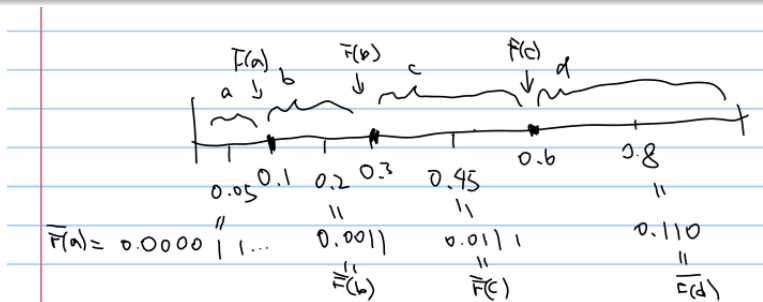 F(a) F(b) F(c)
a b c d
0.05 0.1 0.2 0.3 0.45 0.6 0.8
F̄(a) = 0.0000 1 1... 0.0011 0.0111 0.110
F̄(b) F̄(c) F̄(d)